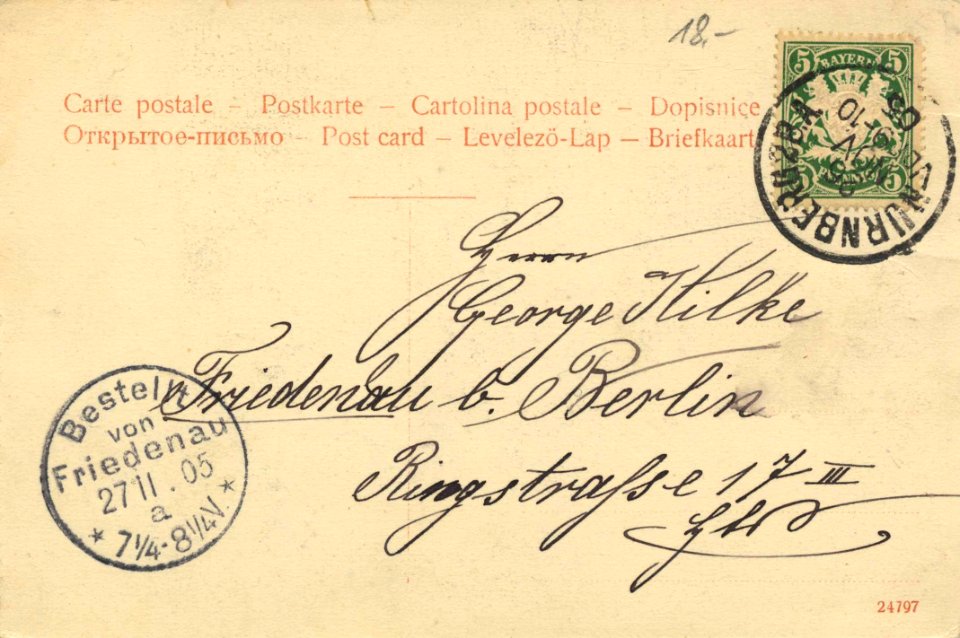 18,-
Carte postale – Postkarte – Cartolina postale – Dopisnice
Открытое-письмо – Post card – Levelező-Lap – Briefkaart
5 BAYERN 5
5 PFENNIG 5
NÜRNBERG 2 B.A.
Herrn
George Hilke
Friedenau b. Berlin
Ringstraſse 17 III
Bestellt
von
Friedenau
27 11 . 05
a
* 7¼-8¼V. *
24797